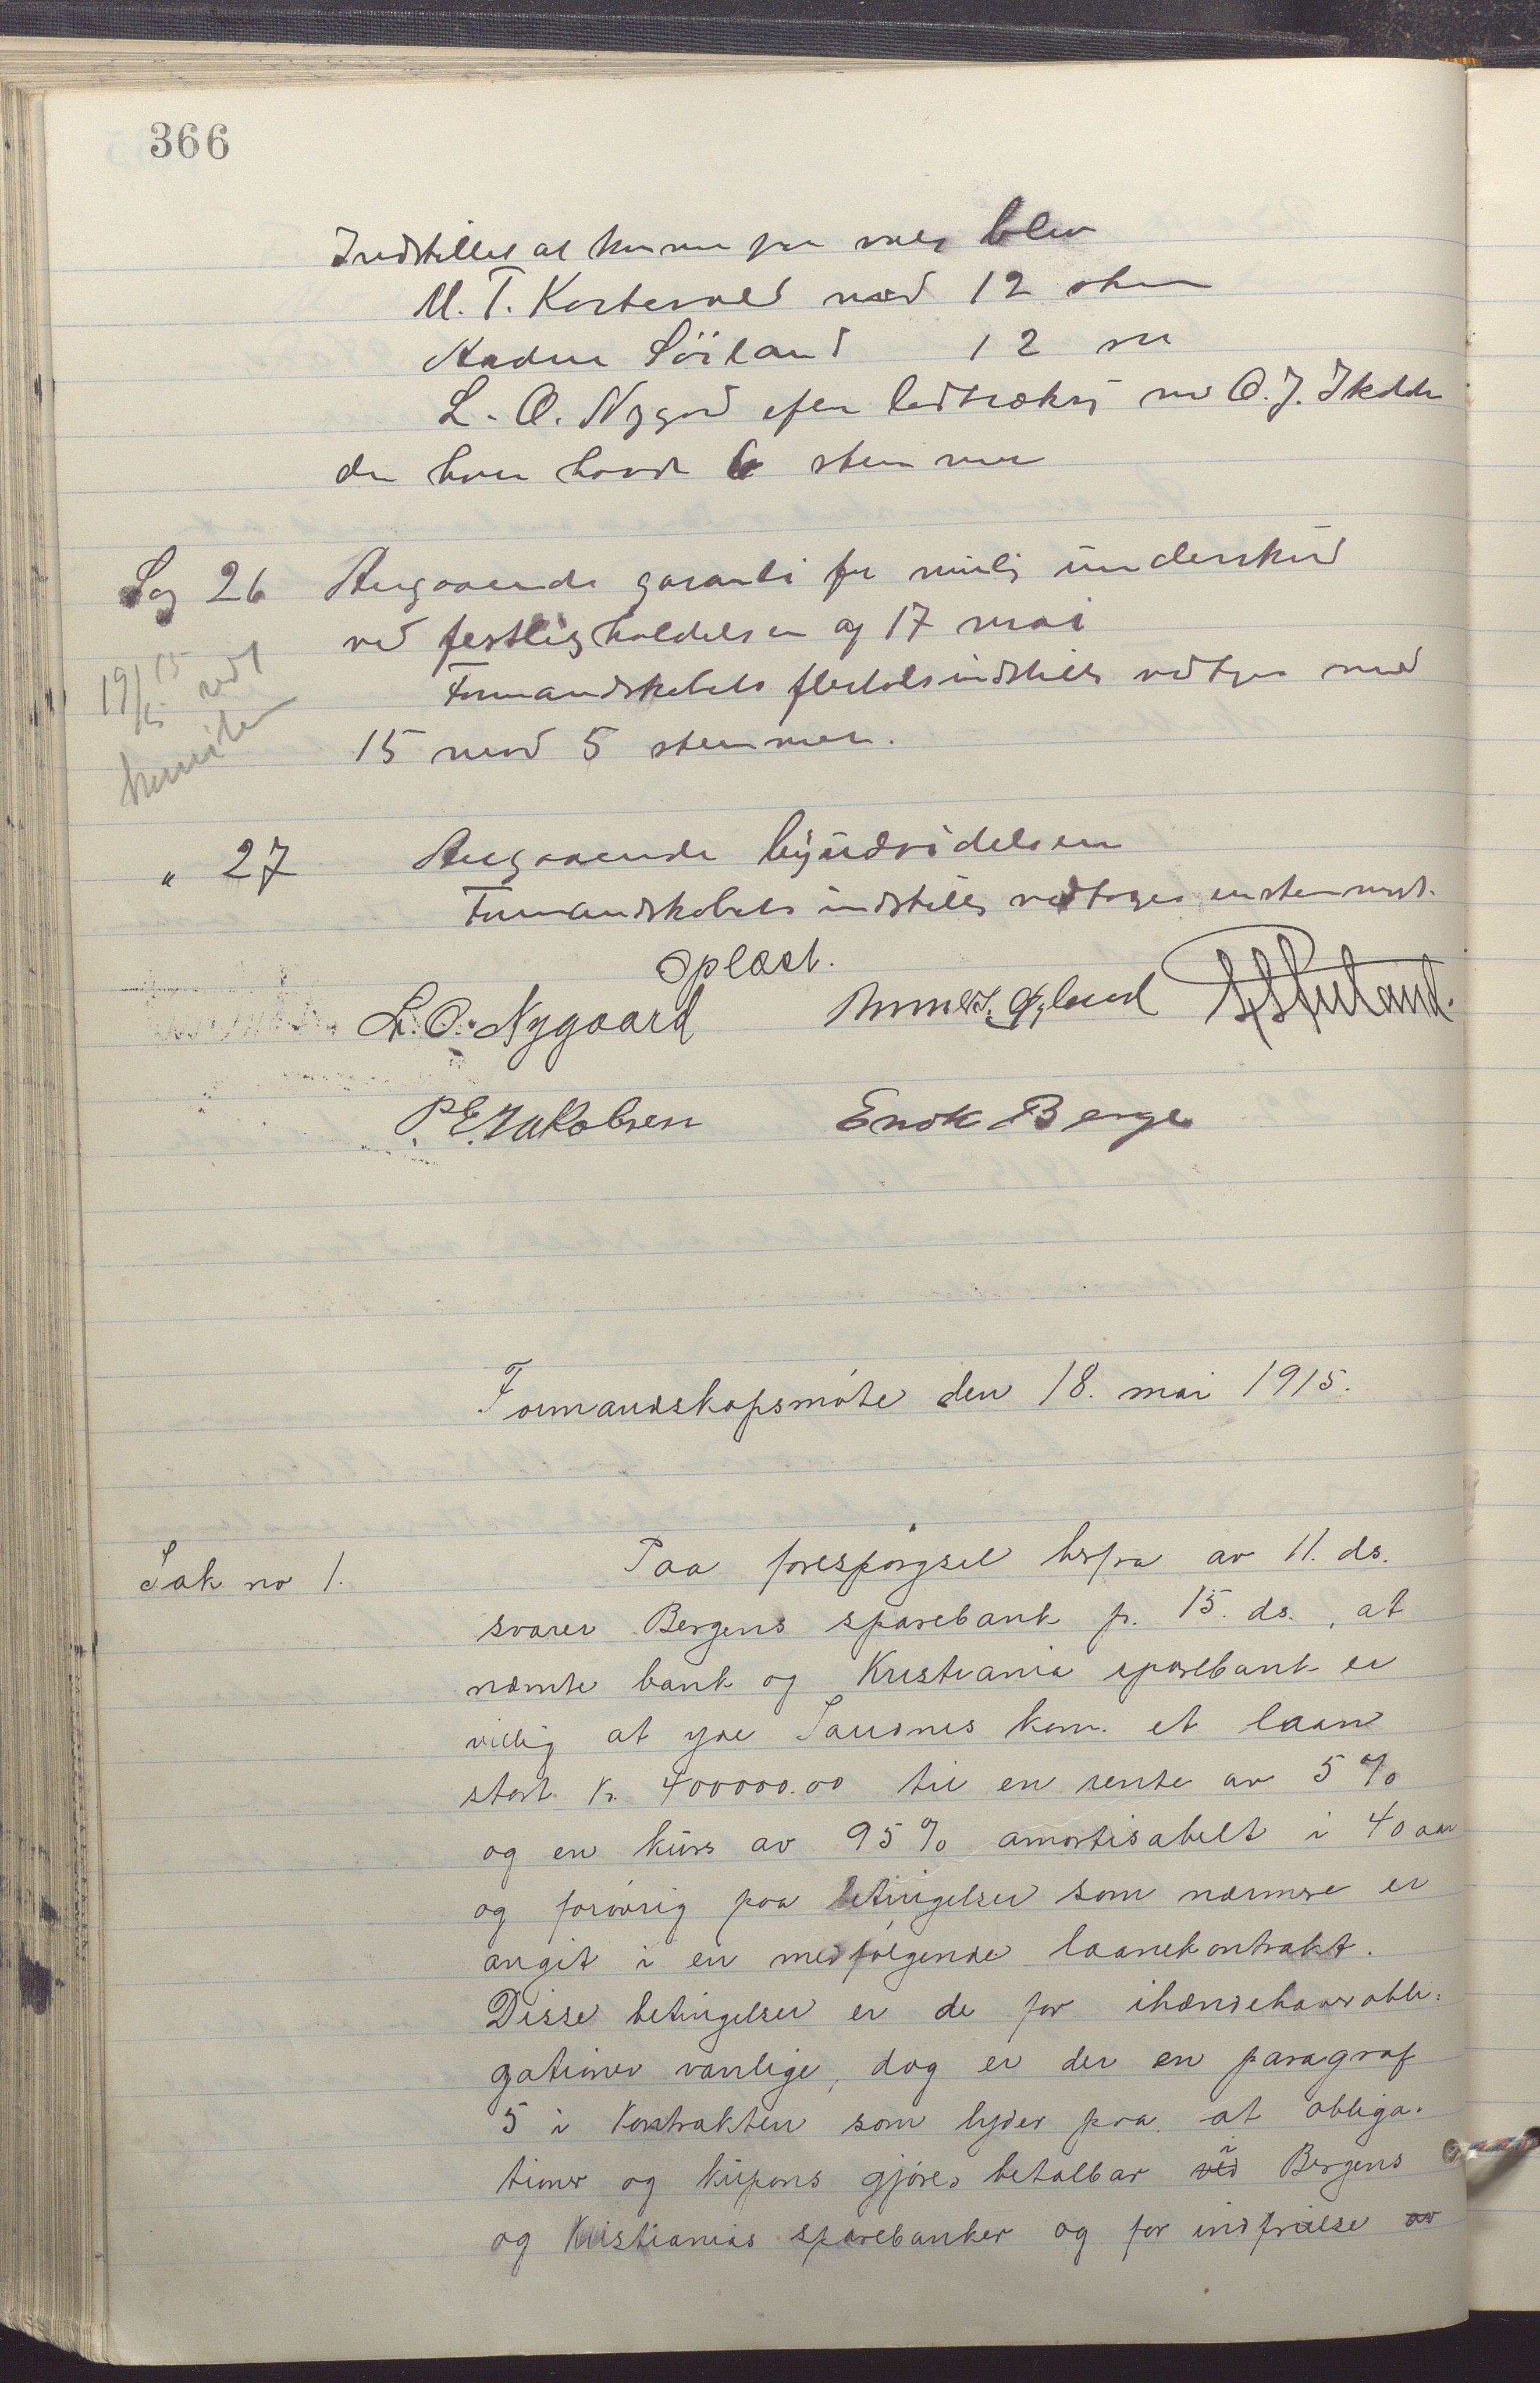 366
Indstillet at kunne paa valg blev
M. T. Kartevold med 12 stem
Andur Söiland 12 "
L. O. Nygard efter lodtrækn med O. J.
der hver havde 6 stemmer
Sag 26 Angaaende garanti for mulig underskud
ved festligholdelsen af 17 mai
19/5 15
Formandskabets flertalsindstilling vedtages med
15 mod 5 stemmer.
" 27 Angaaende byudvidelsen
Formandskabets indstilling vedtages enstemmigt.
Oplæst.
L. O. Nygaard
P. E. Jakobsen Enok Berge
Formandskapsmöte den 18. mai 1915.
Sak no 1. Paa forespörgsel herfra av 11. ds.
svarer Bergens sparebank p. 15. ds., at
nævnte bank og Kristiania sparebank er
villig at yde Sandnes kom. et laan
stort kr. 400000.00 til en rente av 5 %
og en kurs av 95 % amortisabelt i 40 aar
og forövrig paa betingelser som nærmere er
angit i en medfölgende laanekontrakt.
Disse betingelser er de for ihændehaverobli-
gationer vanlige, dog er der en paragraf
5 i kontrakten som lyder paa at obliga-
tioner og kupons gjöres betalbar ved i Bergens
og Kristianias sparebanker og for indfrielse av